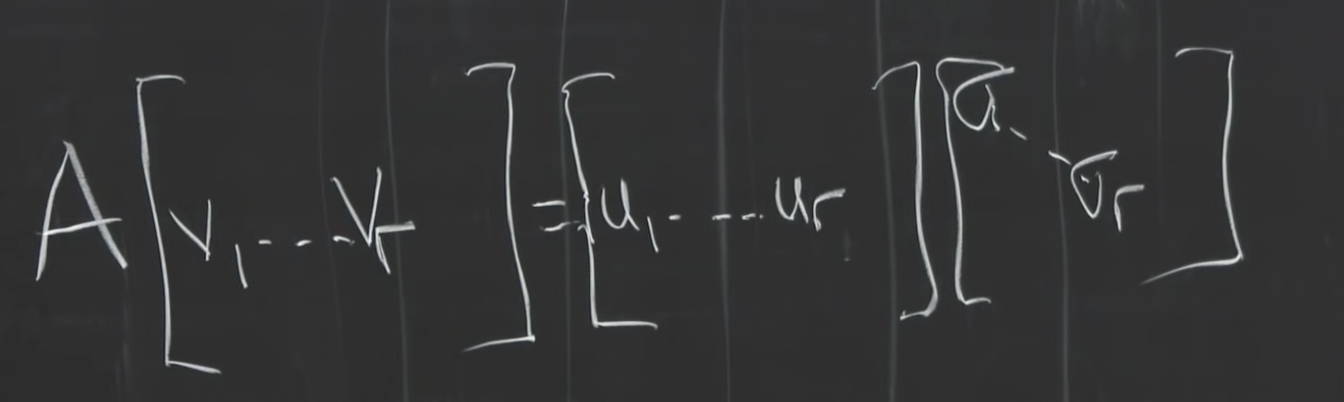 A [v₁ ... vᵣ] = [u₁ ... uᵣ] [σ₁ ... σᵣ]